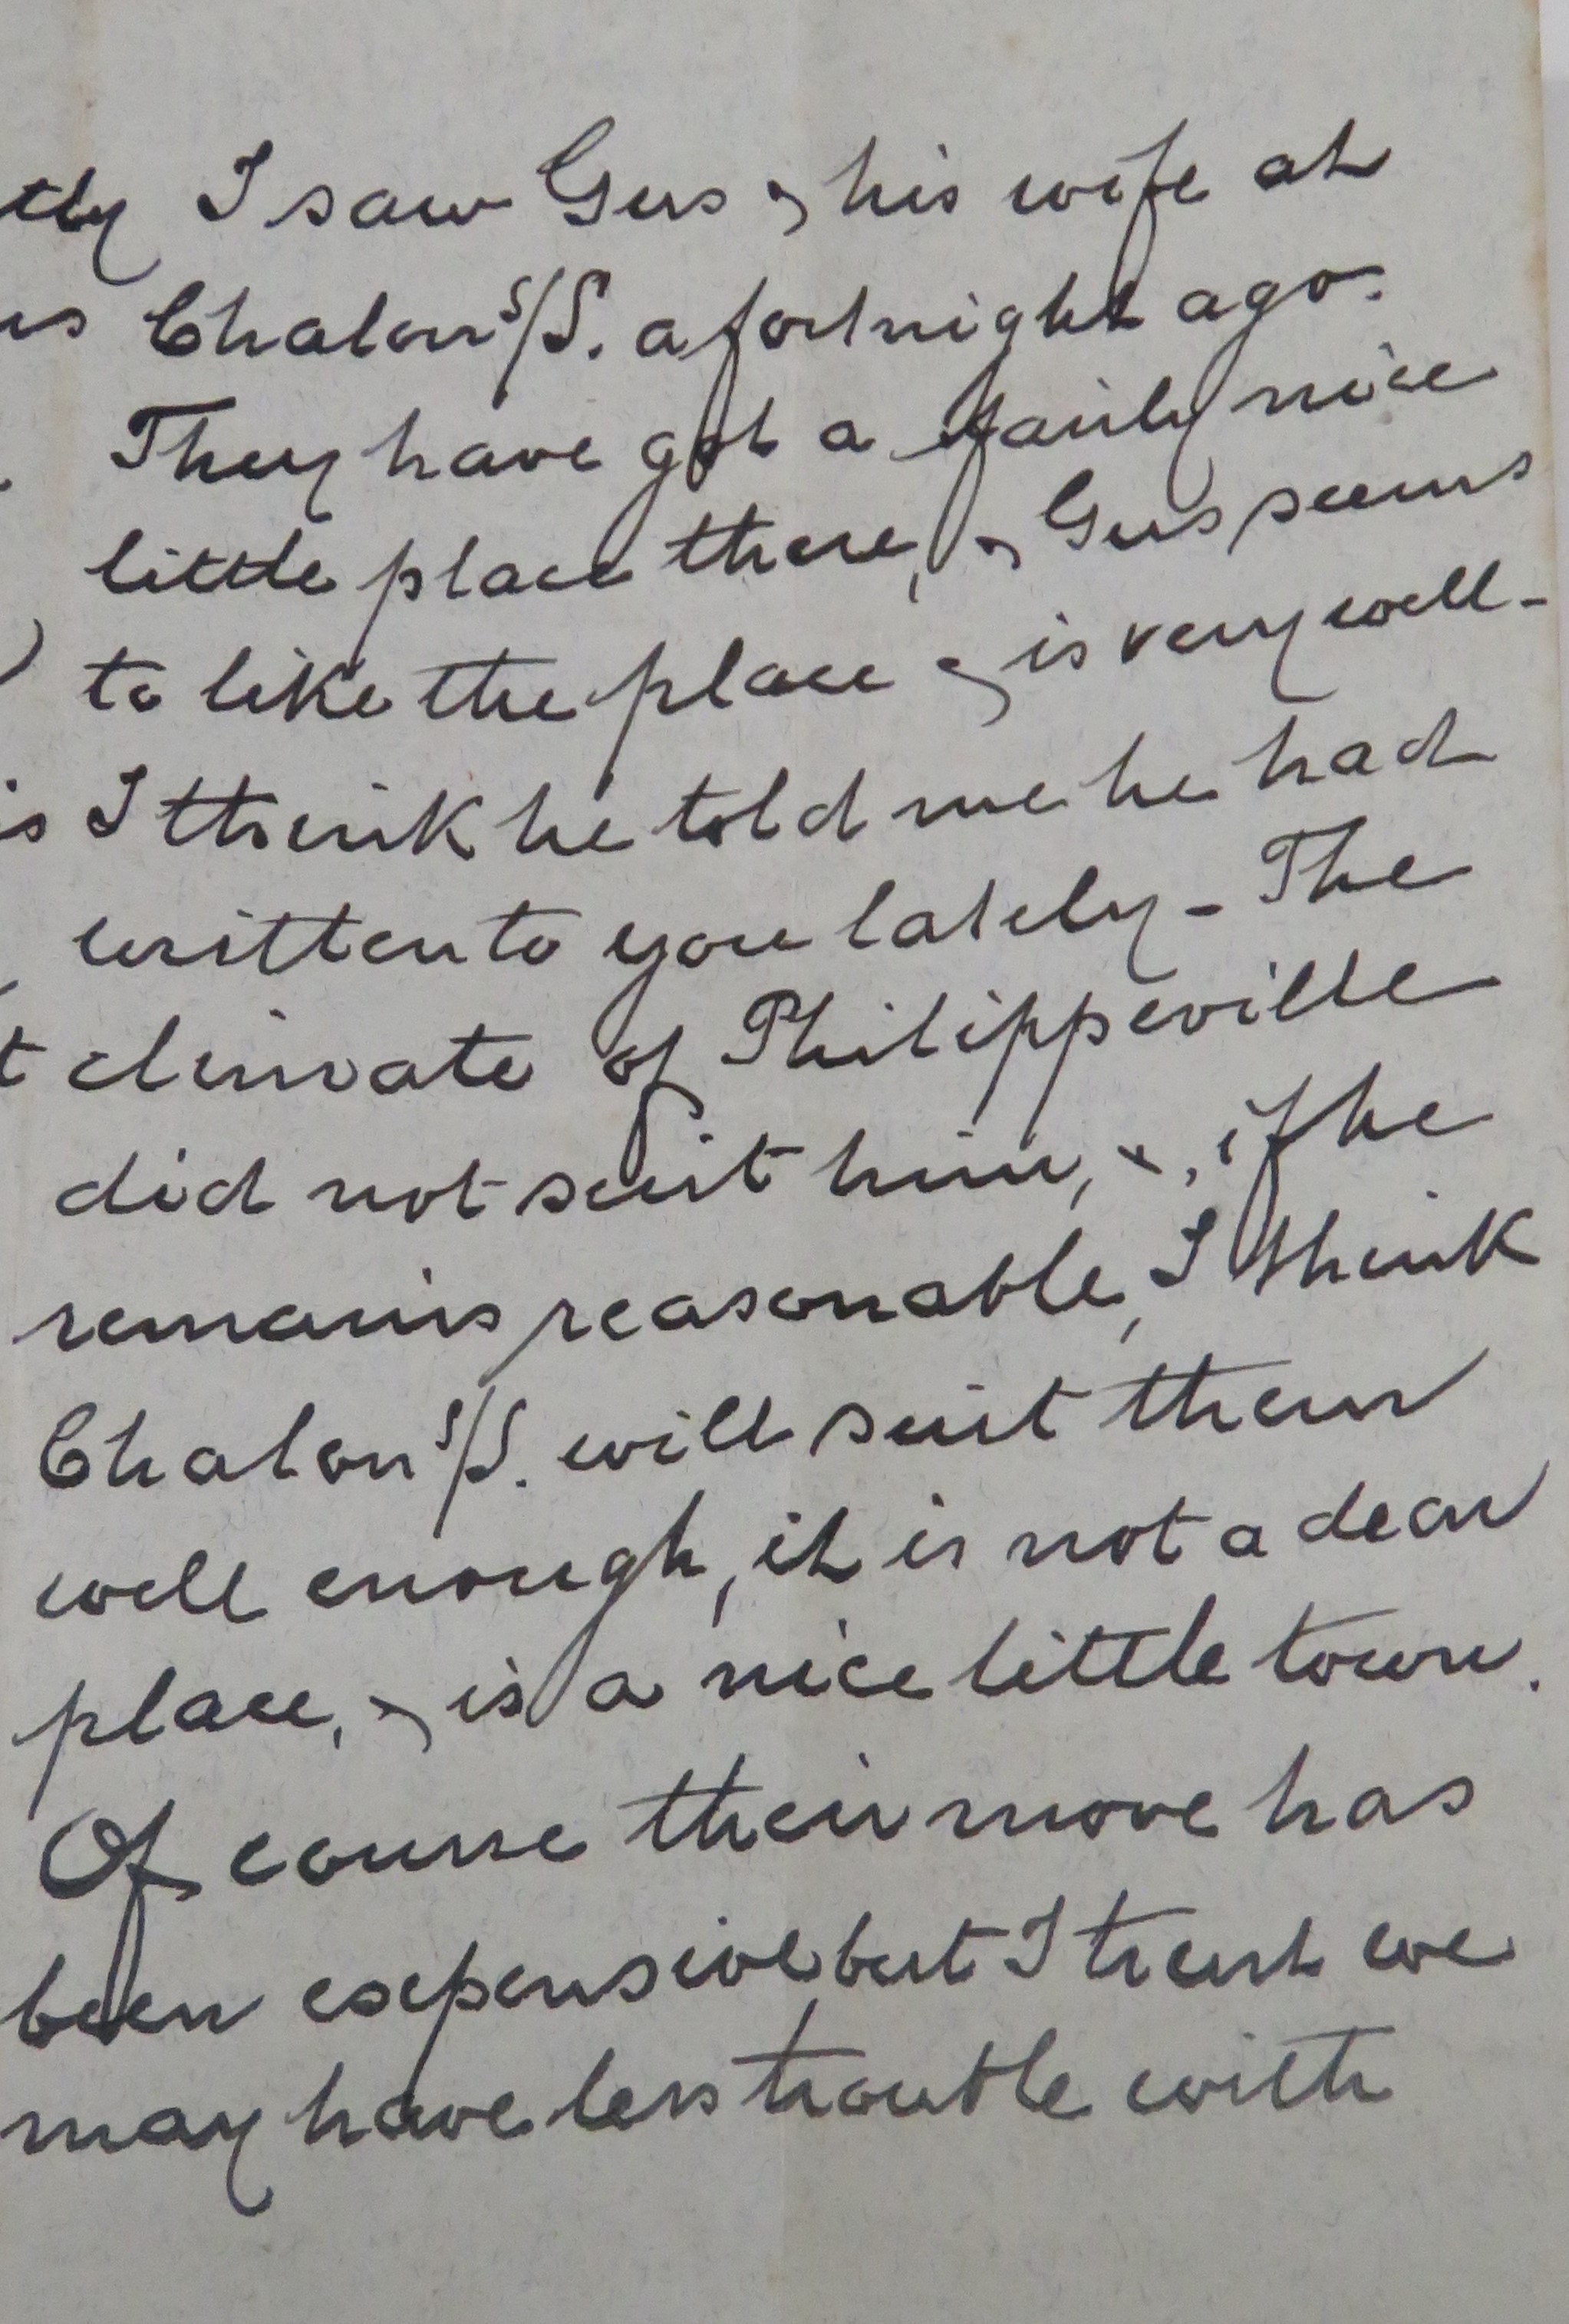 tly I saw Gus & his wife at
es Chalon s/S. a fortnight ago.
They have got a fairly nice
little place there, & Gus seems
to like the place & is very well -
is I think he told me he had
written to you lately - The
t climate of Philippeville
did not suit him, &, if he
remains reasonable, I think
Chalon s/S. will suit them
well enough, it is not a dear
place, & is a nice little town.
Of course their move has
been expensive, but I trust we
may have less trouble with